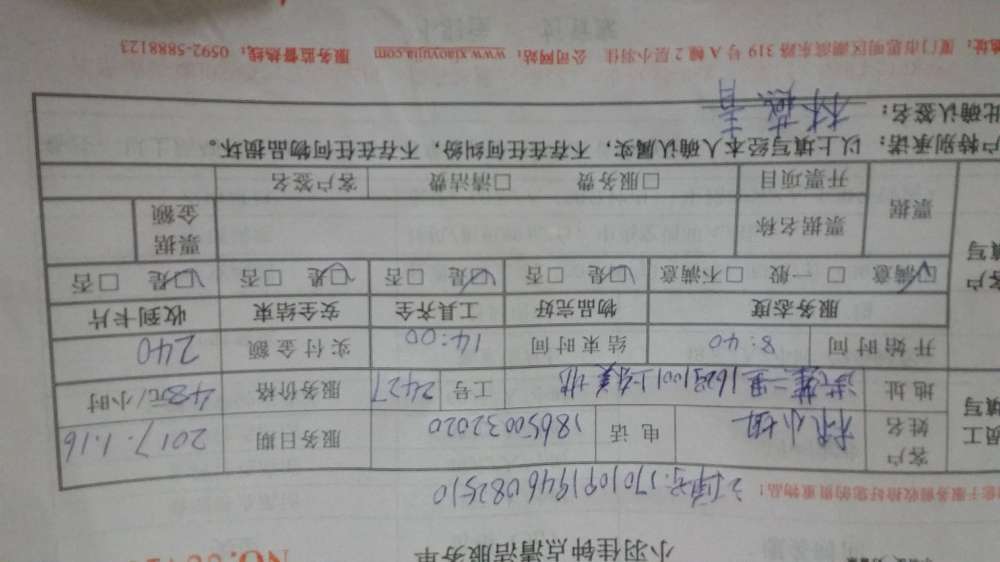 小羽佳钟点清洁服务单
NO.
您于服务前收捡好您的贵重物品:
订单号:1701091946082510
客户姓名 林小姐 电话 18650032020 服务日期 2017.1.16
地址 工号 2427 服务价格 48元/小时
开始时间 8:40 结束时间 14:00 实付金额 240
员工填写
服务态度 物品完好 工具齐全 安全结束 收到卡片
☑满意 □一般 □不满意 ☑是 □否 ☑是 □否 ☑是 □否 ☑是 □否
客户填写
票据 票据名称 票据金额
开票项目 □服务费 □清洁费 客户签名
户特别承诺:以上填写经本人确认属实,不存在任何纠纷,不存在任何物品损坏。
此确认签名:
地址:厦门市思明区湖滨东路 319 号 A 幢 2 层小羽佳 公司网站:www.xiaoyujia.com 服务监督热线:0592-5888123